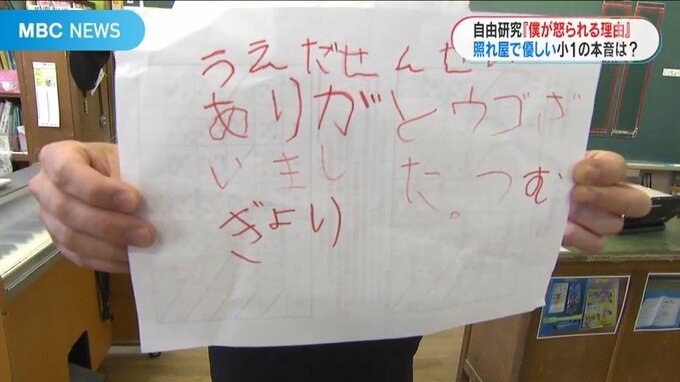 MBC NEWS
自由研究『僕が怒られる理由』
照れ屋で優しい小1の本音は?
うえだせんせい
ありがとウゴざ
いました。つむ
ぎより